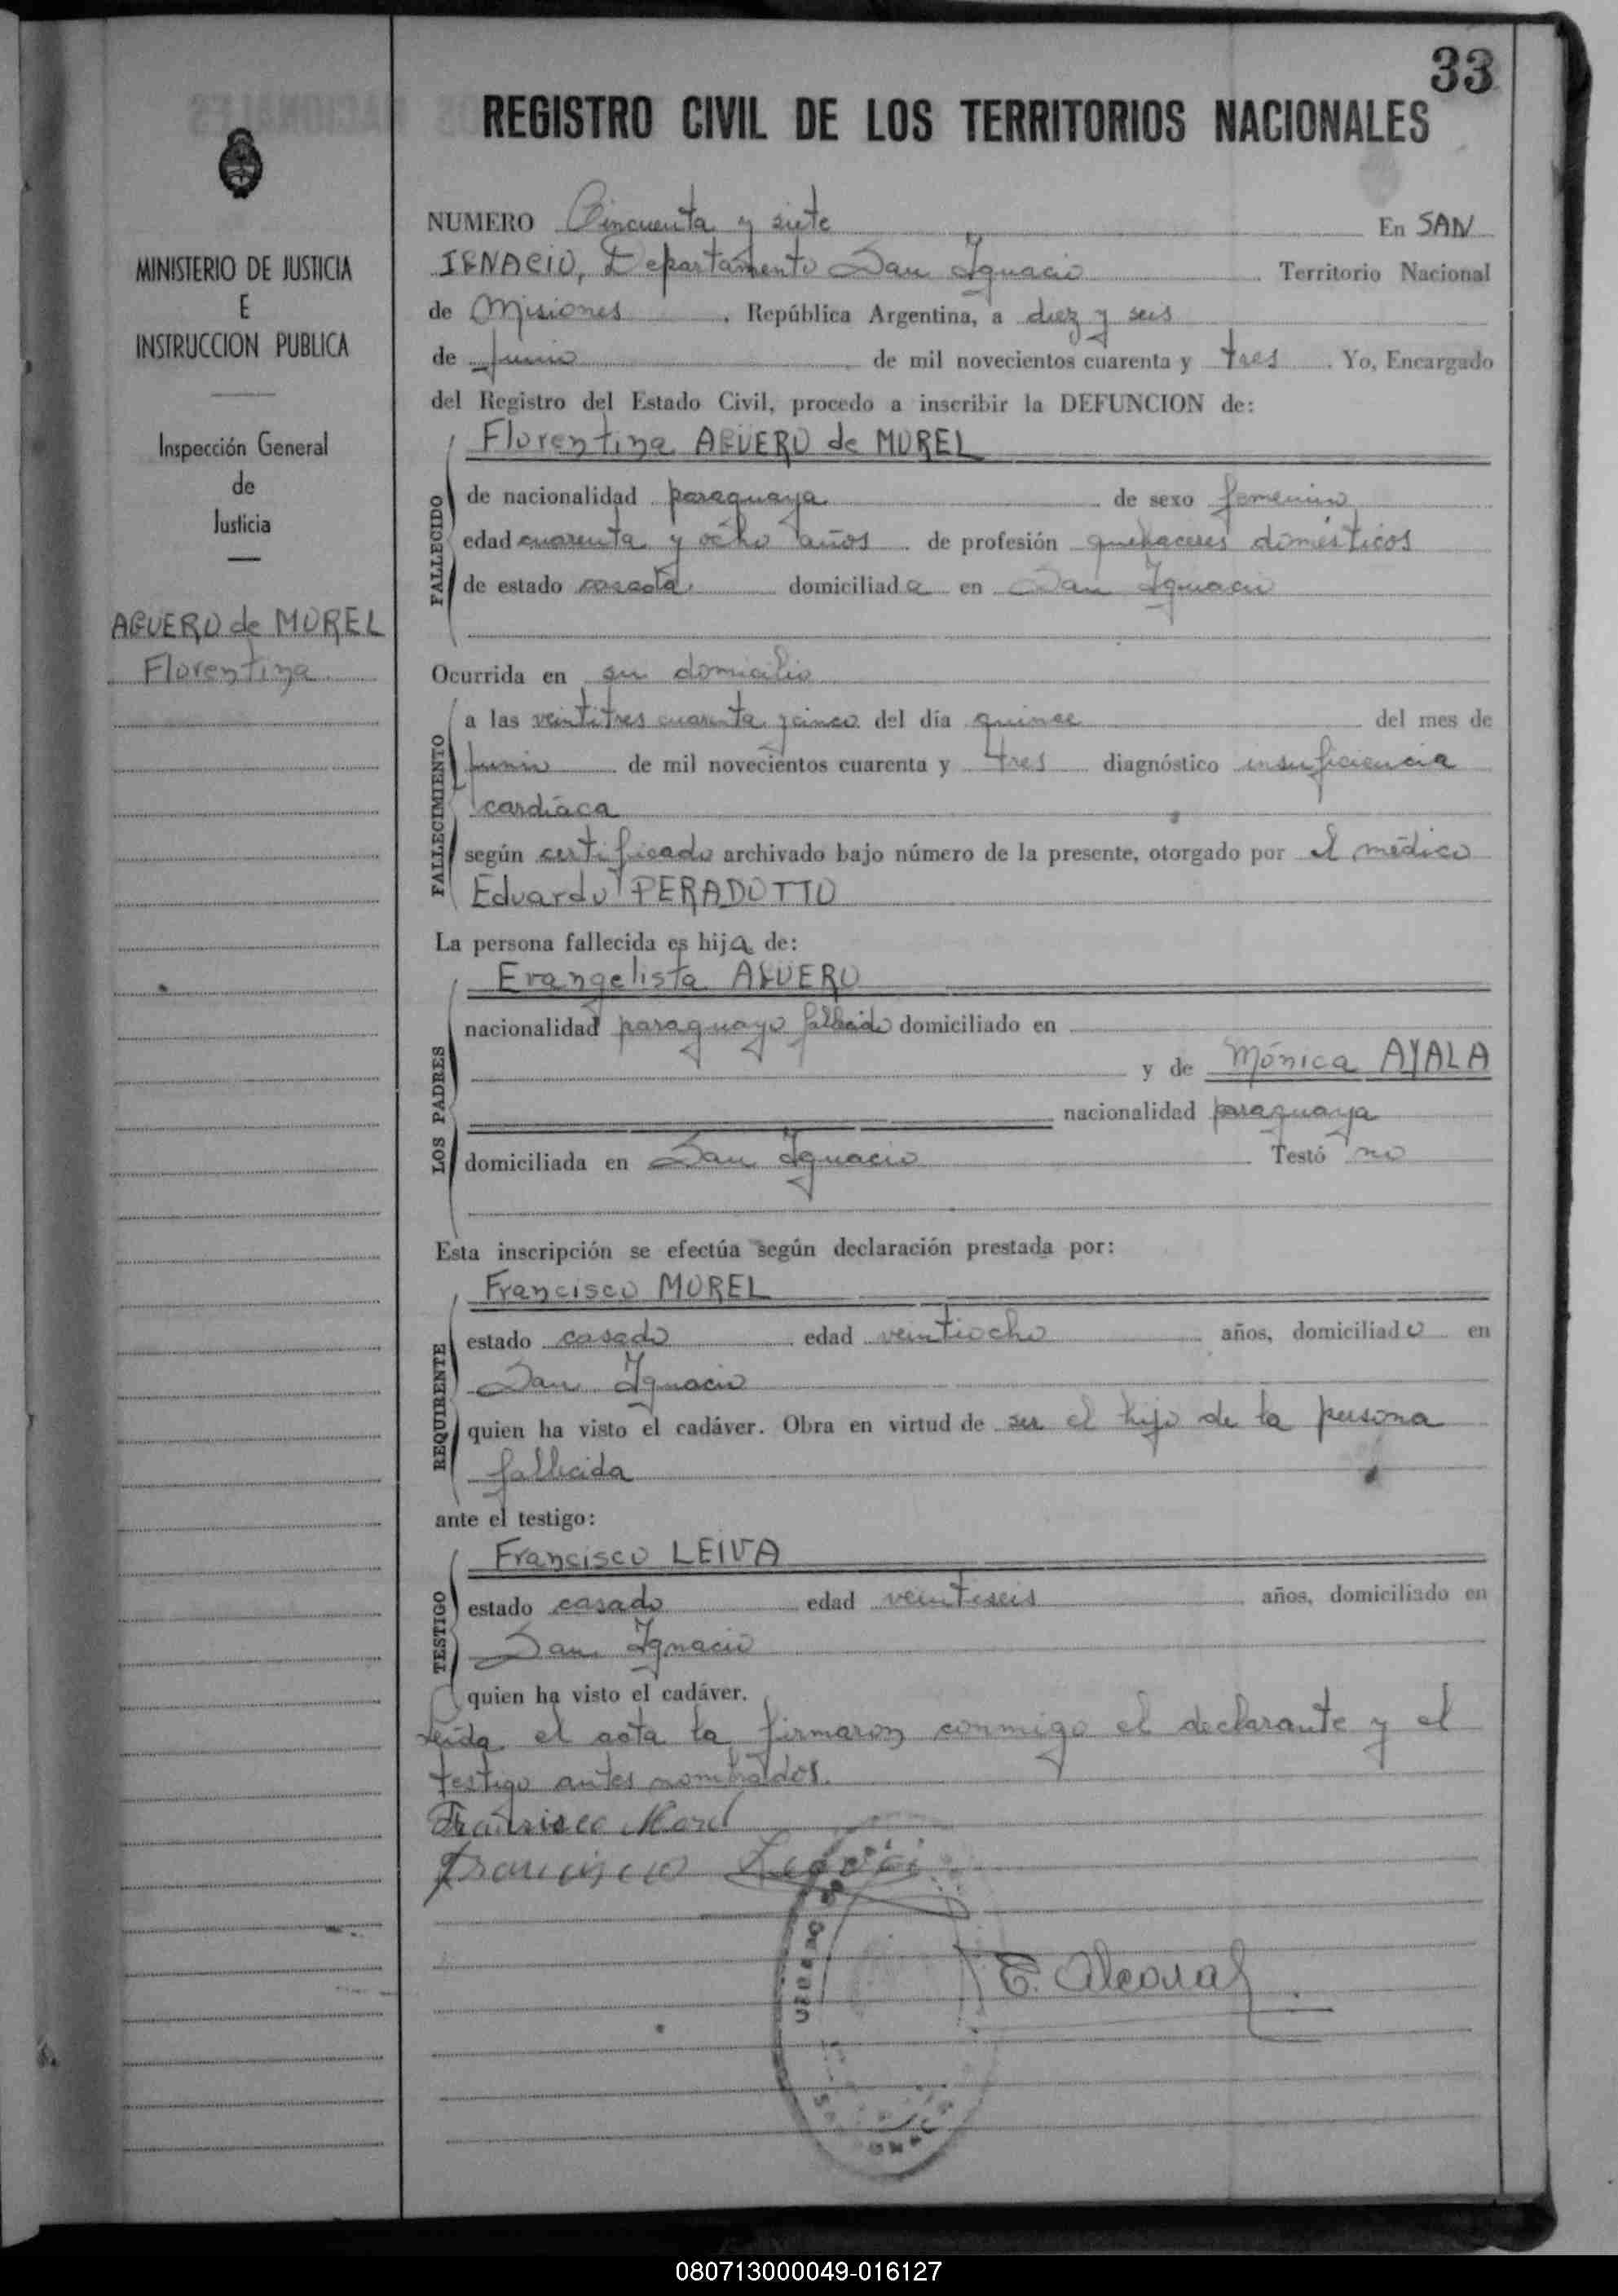 33
REGISTRO CIVIL DE LOS TERRITORIOS NACIONALES
MINISTERIO DE JUSTICIA
E
INSTRUCCION PUBLICA
Inspección General
de
Justicia
AGUERO de MOREL
Florentina
NUMERO Cincuenta y siete En SAN
IGNACIO, Departamento San Ignacio Territorio Nacional
de Misiones. República Argentina, a diez y seis
de junio de mil novecientos cuarenta y tres. Yo, Encargado
del Registro del Estado Civil, procedo a inscribir la DEFUNCION de:
Florentina AGUERO de MOREL
FALLECIDO
de nacionalidad paraguaya de sexo femenino
edad cuarenta y ocho años de profesión quehaceres domésticos
de estado casada domiciliada en San Ignacio
Ocurrida en su domicilio
FALLECIMIENTO
a las veintitres cuarenta y cinco del día quince del mes de
junio de mil novecientos cuarenta y tres diagnóstico insuficiencia
cardíaca
según certificado archivado bajo número de la presente, otorgado por el médico
Eduardo PERADOTTO
La persona fallecida es hija de:
LOS PADRES
Evangelista AGUERO
nacionalidad paraguayo fallecido domiciliado en
y de Mónica AYALA
nacionalidad paraguaya
domiciliada en San Ignacio Testó no
Esta inscripción se efectúa según declaración prestada por:
REQUIRENTE
Francisco MOREL
estado casado edad veintiocho años, domiciliado en
San Ignacio
quien ha visto el cadáver. Obra en virtud de ser el hijo de la persona
fallecida
ante el testigo:
TESTIGO
Francisco LEIVA
estado casado edad veintiseis años, domiciliado en
San Ignacio
quien ha visto el cadáver.
Leída el acta la firmaron conmigo el declarante y el
testigo antes nombrados.
Francisco Morel
Francisco Leiva
080713000049-016127